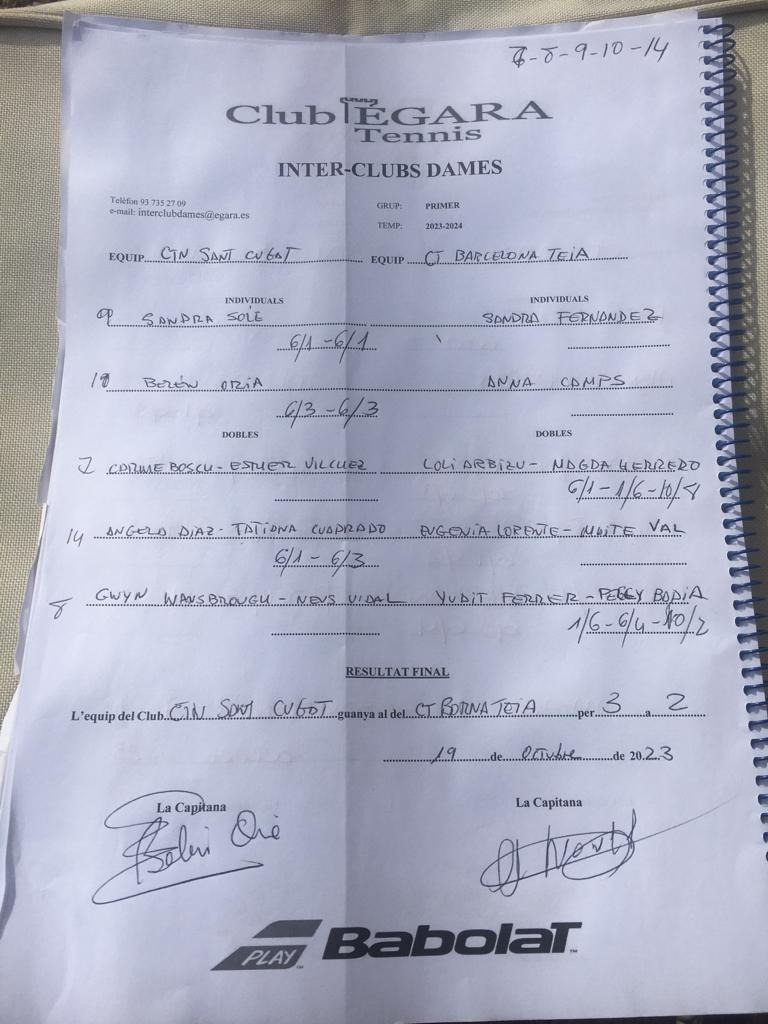 7-8-9-10-14
Club ÈGARA
Tennis
INTER-CLUBS DAMES
Telèfon 93 735 27 09
e-mail: interclubdames@egara.es
GRUP: PRIMER
TEMP: 2023-2024
EQUIP CTN SANT CUGAT EQUIP CT BARCELONA TEIA
INDIVIDUALS INDIVIDUALS
9 SANDRA SOLÉ SANDRA FERNANDEZ
6/1-6/1
10 BELÉN ORIA ANNA CAMPS
6/3-6/3
DOBLES DOBLES
7 CARME BOSCH - ESTHER VILCHEZ LOLI ARBIZU - MAGDA HERRERO
6/1-1/6-10/8
14 ANGELA DIAZ - TATIANA CUADRADO EUGENIA LORENTE - MAITE VAL
6/1 - 6/3
8 GWYN WANSBROUGH - NEUS VIDAL YUDIT FERRER - PEGGY BADIA
1/6-6/4-10/2
RESULTAT FINAL
L'equip del Club CTN SANT CUGAT guanya al del CT BARNA TEIA per 3 a 2
19 de octubre de 2023
La Capitana La Capitana
Belén Oria
PLAY BabolaT